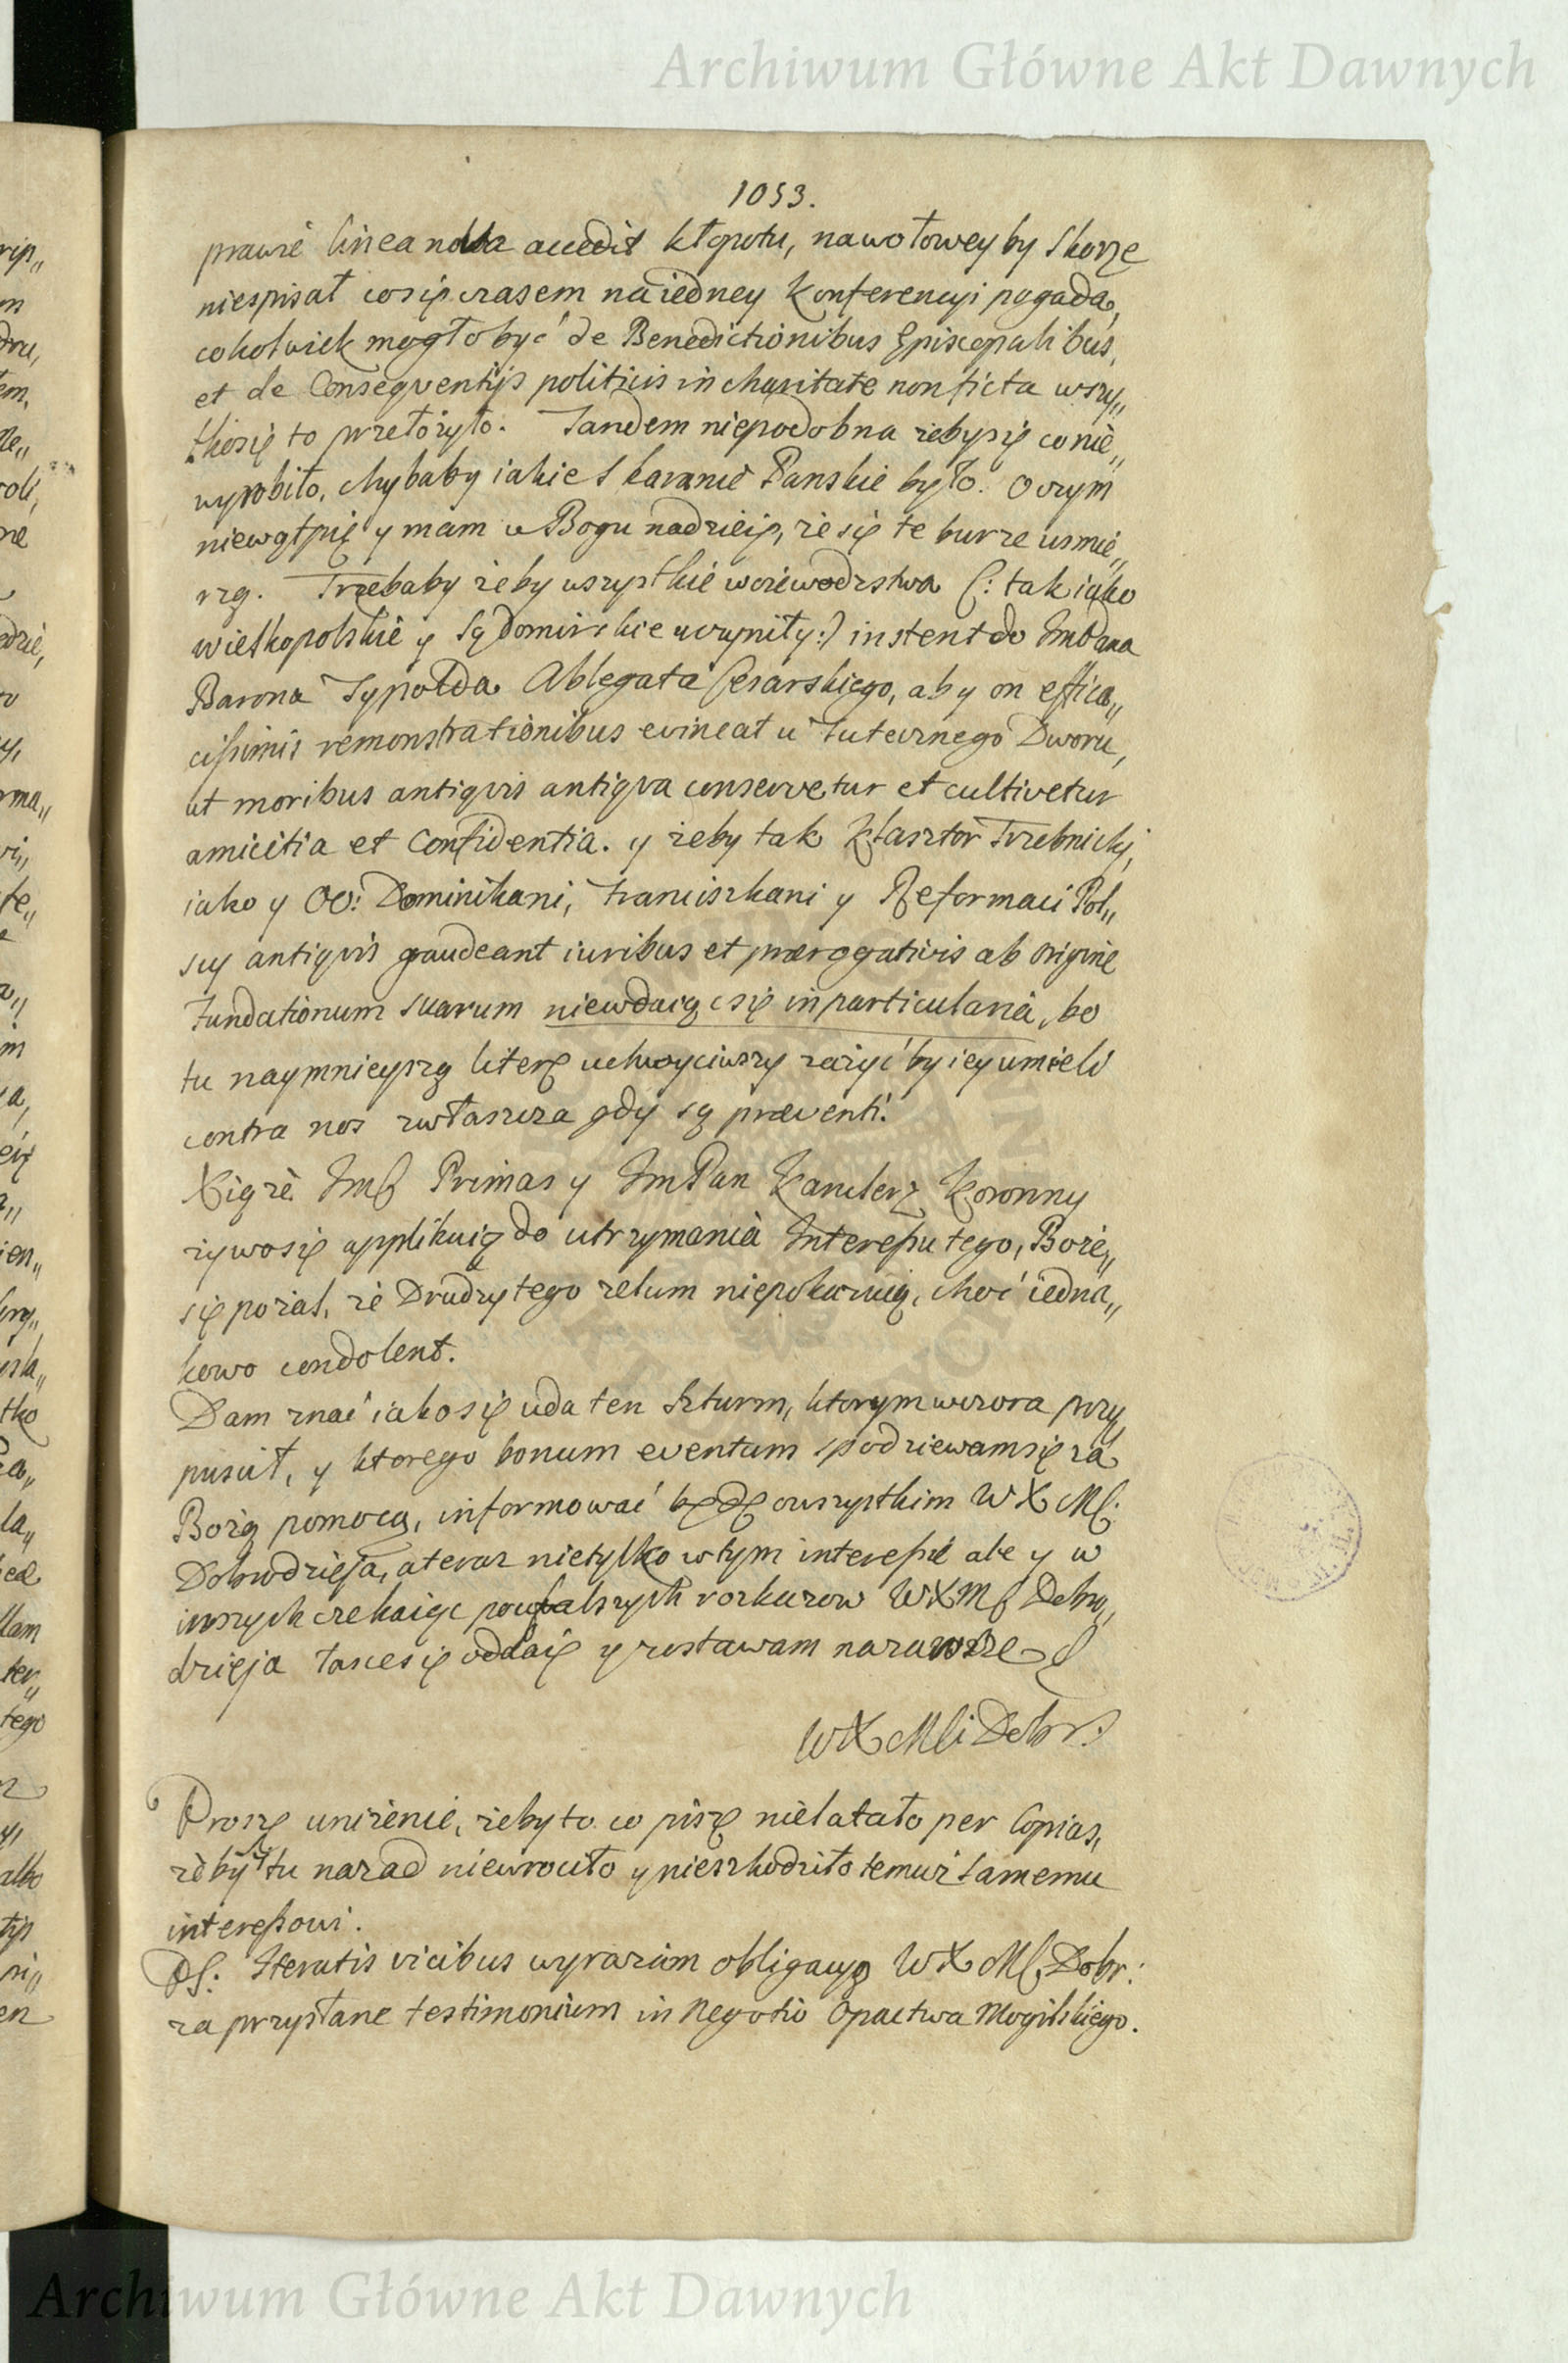 Archiwum Główne Akt Dawnych
1053.
prawie linea nulla accedit kłopotu, nawołowey by skorze
niespisał cosię czasem na iedney Konferencyi pogada,
cokolwiek mogło być de Benedictionibus Episcopalibus,
et de Conseqventijs politicis in charitate non ficta wszy„
tkosię to przełożyło. Tandem niepodobna żebysię co nie„
wyrobiło, chybaby iakie skaranie Panskie było. O czym
niewątpię y mam w Bogu nadzieię, że się te burze usmie„
rzą. Trzebaby żeby wszystkie woiewodztwa (: tak iako
wielkopolskie y Sędomirskie uczyniły :) instent do ImPana
Barona Sypolda Ablegata Cesarskiego, aby on effica„
cissimis remonstrationibus evincat u tutecznego Dworu,
ut moribus antiqvis antiqva conservetur et cultivetur
amicitia et Confidentia. y żeby tak Klasztor Trzebnicki,
iako y OO: Dominikani, Franciszkani y Reformaci Pol„
scy antiqvis gaudeant iuribus et praerogativis ab origine
Fundationum suarum niewdaiąc się in particularia, bo
tu naymnieyszą literę uchwyciwszy zażyć by iey umieli
contra nos zwłaszcza gdy są praeventi.
Xiąże Imć Primas y ImPan Kanclerz Koronny
żywosię applikuią do utrzymania Interessu tego, Boże„
się pożal, że Drudzy tego zelum niepokazuią, choć iedna„
kowo condolent.
Dam znać iakosię uda ten szturm, ktorym wczora przy„
puscił, y ktorego bonum eventum spodziewamsię za
Bożą pomocą, informować będę owszystkim WXMć.
Dobrodzieja, ateraz nietylko wtym interessie ale y w
inszych czekaiąc poufalszych rozkazow WXMć Dobro„
dzieja łascesię oddaię y zostawam nazawsze
WXMći Dobr:
Proszę uniżenie, żeby to co piszę nielatało per Copias,
żeby tu nazad niewrociło y nieszkodziło temuż samemu
interessowi.
PS. Iteratis vicibus wyrażam obligacyą WXMć Dobr:
za przysłane testimonium in Negotio Opactwa Mogilskiego.
Archiwum Główne Akt Dawnych